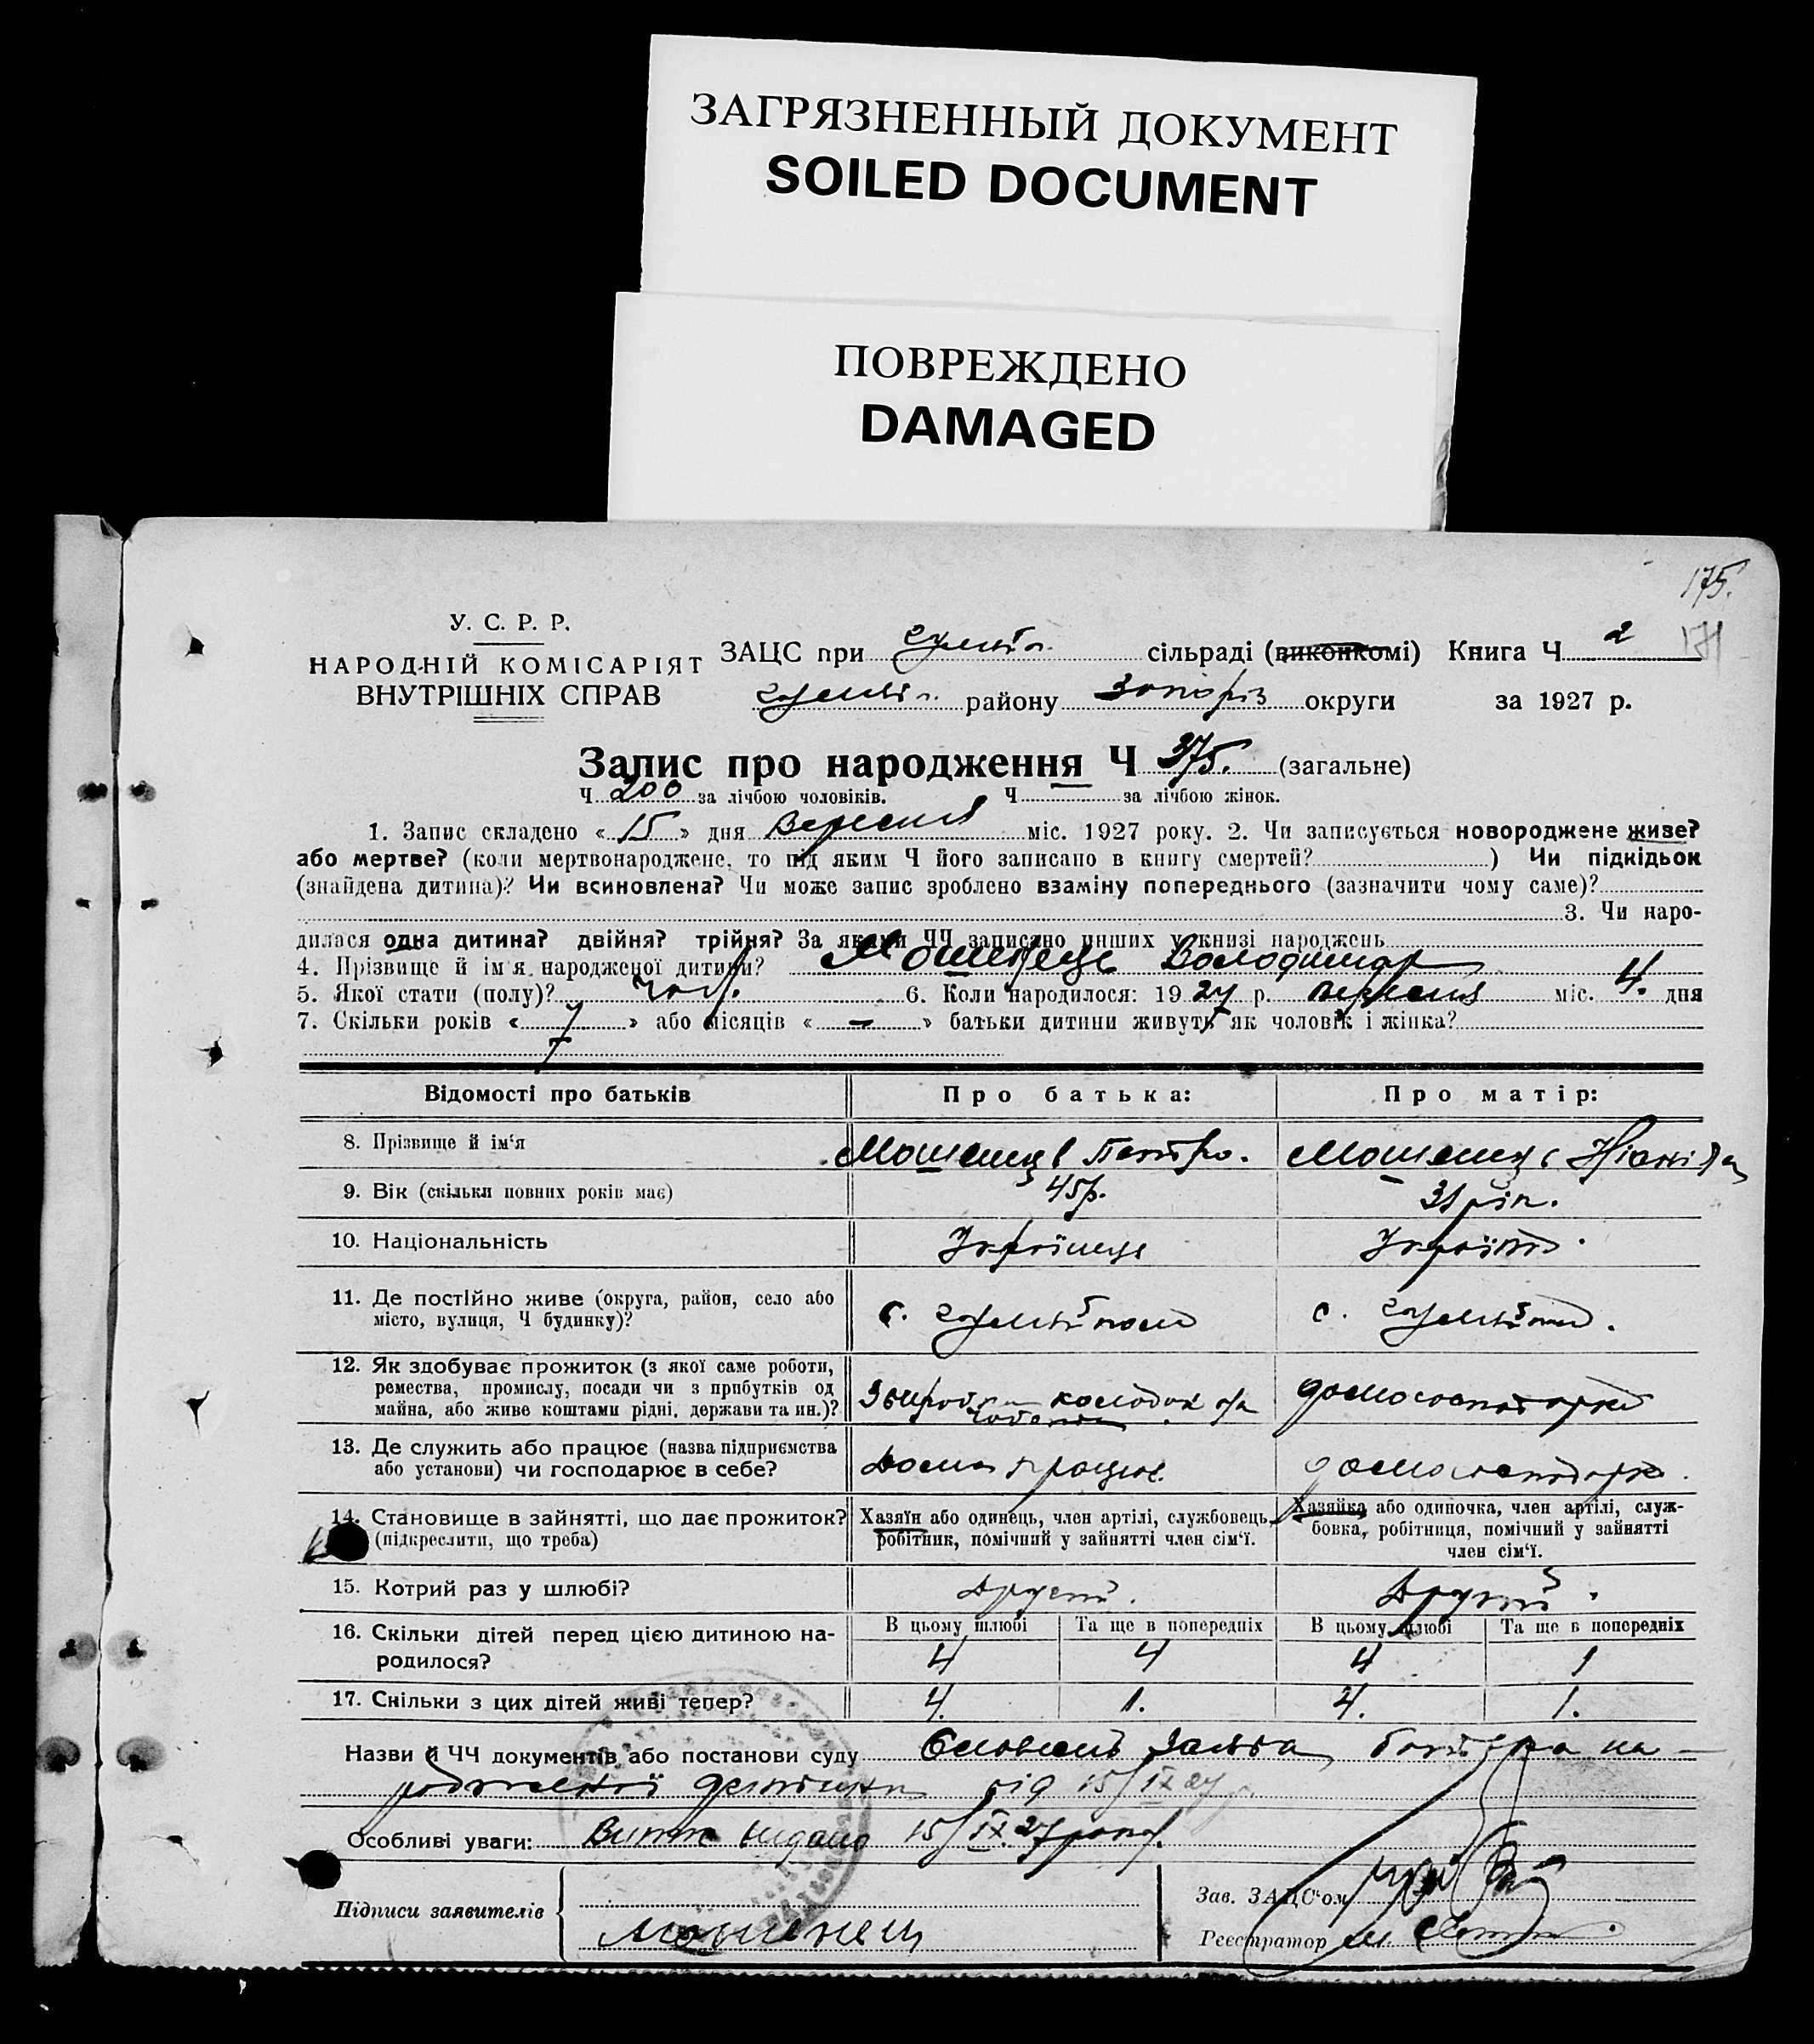 ЗАГРЯЗНЕННЫЙ ДОКУМЕНТ
SOILED DOCUMENT
ПОВРЕЖДЕНО
DAMAGED
175.
171
У. С. Р. Р.
НАРОДНІЙ КОМІСАРІЯТ
ВНУТРІШНІХ СПРАВ
ЗАЦС при сільраді (виконкомі) Книга Ч 2
району Запоріз округи за 1927 р.
Запис про народження Ч 375. (загальне)
Ч 200 за лічбою чоловіків. Ч за лічбою жінок.
1. Запис складено « 15 » дня Вересня міс. 1927 року. 2. Чи записується новороджене живе?
або мертве? (коли мертвонароджене, то під яким Ч його записано в книгу смертей? ) Чи підкідьок
(знайдена дитина)? Чи всиновлена? Чи може запис зроблено взаміну попереднього (зазначити чому саме)?
3. Чи наро-
дилася одна дитина? двійня? трійня? За якими ЧЧ записано инших у книзі народжень
4. Прізвище й ім'я народженої дитини? Мошенець Володимир
5. Якої стати (полу)? чол. 6. Коли народилося: 1927 р. вересня міс. 4. дня
7. Скільки років « 7 » або місяців « – » батьки дитини живуть як чоловік і жінка?
Відомості про батьків Про батька: Про матір:
8. Прізвище й ім'я Мошенець Петро. Мошенець
9. Вік (скільки повних років має) 45 р. 31 рік.
10. Національність Українець Українка
11. Де постійно живе (округа, район, село або с. с.
місто, вулиця, Ч будинку)?
12. Як здобуває прожиток (з якої саме роботи,
ремества, промислу, посади чи з прибутків од колодок домогосподарка
майна, або живе коштами рідні, держави та ин.)?
13. Де служить або працює (назва підприємства Дома працює. домогосподарка.
або установи) чи господарює в себе?
14. Становище в зайнятті, що дає прожиток? Хазяїн або одинець, член артілі, службовець, Хазяйка або одиночка, член артілі, служ-
(підкреслити, що треба) робітник, помічний у зайнятті член сім'ї. бовка, робітниця, помічний у зайнятті
член сім'ї.
15. Котрий раз у шлюбі? Другий. Другий.
16. Скільки дітей перед цією дитиною на- В цьому шлюбі Та ще в попередніх В цьому шлюбі Та ще в попередніх
родилося? 4 4 4 1
17. Скільки з цих дітей живі тепер? 4. 1. 4. 1.
Назви й ЧЧ документів або постанови суду Словесна заява батька на-
родженої дитини від 15/IX 27 р.
Особливі уваги: Витяг видано 15/IX 27 року.
Підписи заявителів
Мошенец
Зав. ЗАЦС'ом
Реєстратор